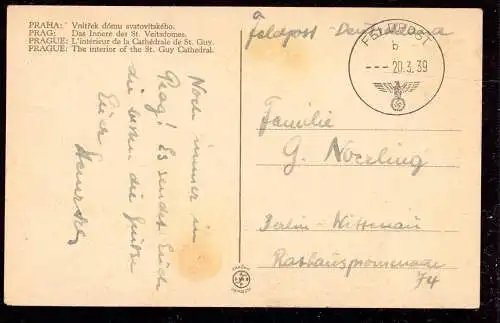 PRAHA: Vnitřek dómu svatovítského.
PRAG: Das Innere der St. Veitsdomes.
PRAGUE: L'intérieur de la Cathédrale de St. Guy.
PRAGUE: The interior of the St. Guy Cathedral.
Feldpost
FELDPOST
b
--- 20.3.39
Noch immer in
Prag! Es sendet Euch
die besten Grüße
Euer
Familie
G. Noerling
Berlin-Wittenau
Rathauspromenade
74